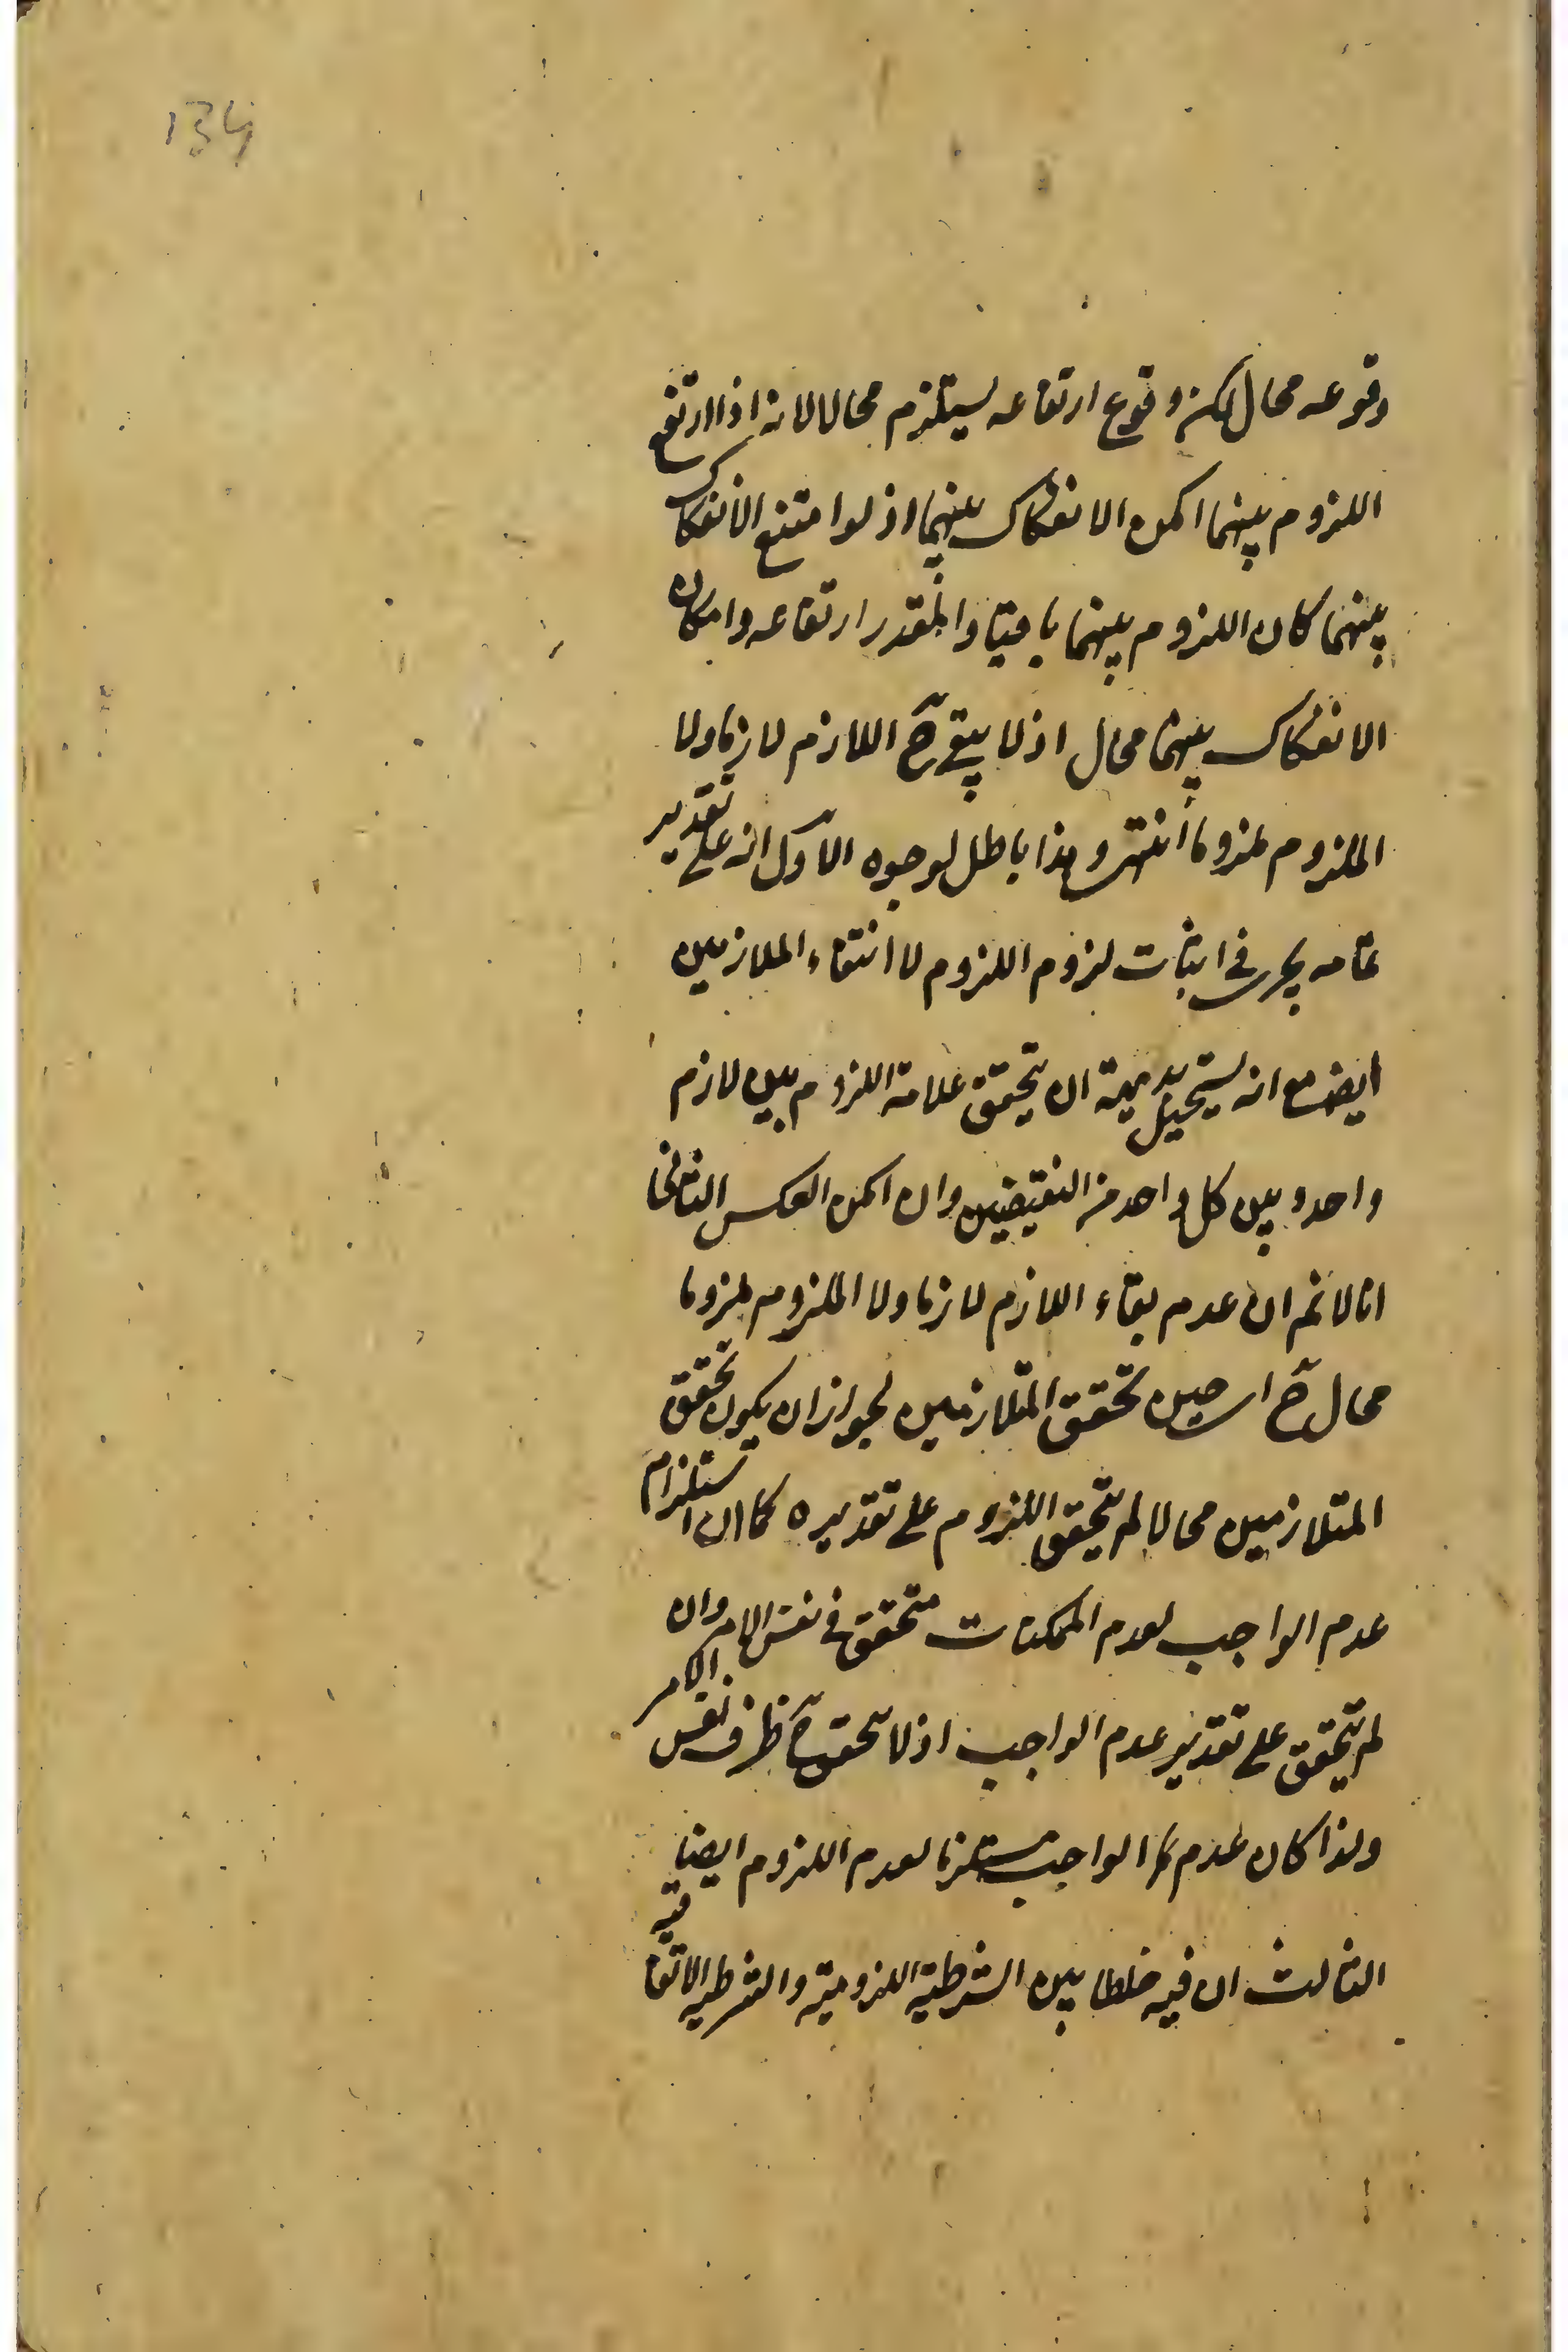 134
وقوعه محال لكن وقوع ارتفاعه يستلزم محالا لانه اذا ارتفع
اللزوم بينهما امكن الانفكاك بينهما اذ لو امتنع الانفكاك
بينهما كان اللزوم بينهما باقيا والمقدر ارتفاعه وامكان
الانفكاك بينهما محال اذ لا يبقى ح اللازم لازما ولا
الملزوم ملزوما انتهى وهذا باطل لوجوه الاول انه على تقدير
تمامه يجرى فى اثبات لزوم اللزوم لا انتفاء الملازمين
ايضا مع انه يستحيل بديهة ان يتحقق علامة اللزوم بين لازم
واحد وبين كل واحد من النقيضين وان امكن العكس الثانى
انا لانم ان عدم بقاء اللازم لازما ولا الملزوم ملزوما
محال ح اى حين تحقق المتلازمين لجواز ان يكون تحقق
المتلازمين محالا لم يتحقق اللزوم على تقديره كما ان استلزام
عدم الواجب لعدم الممكنات متحقق فى نفس الامر وان
لم يتحقق على تقدير عدم الواجب اذ لا يتحقق ح ظرف نفس الامر
ولذا كان عدم الواجب مستلزما لعدم اللزوم ايضا
الثالث ان فيه خلطا بين الشرطية اللزومية والشرطية الاتفاقية